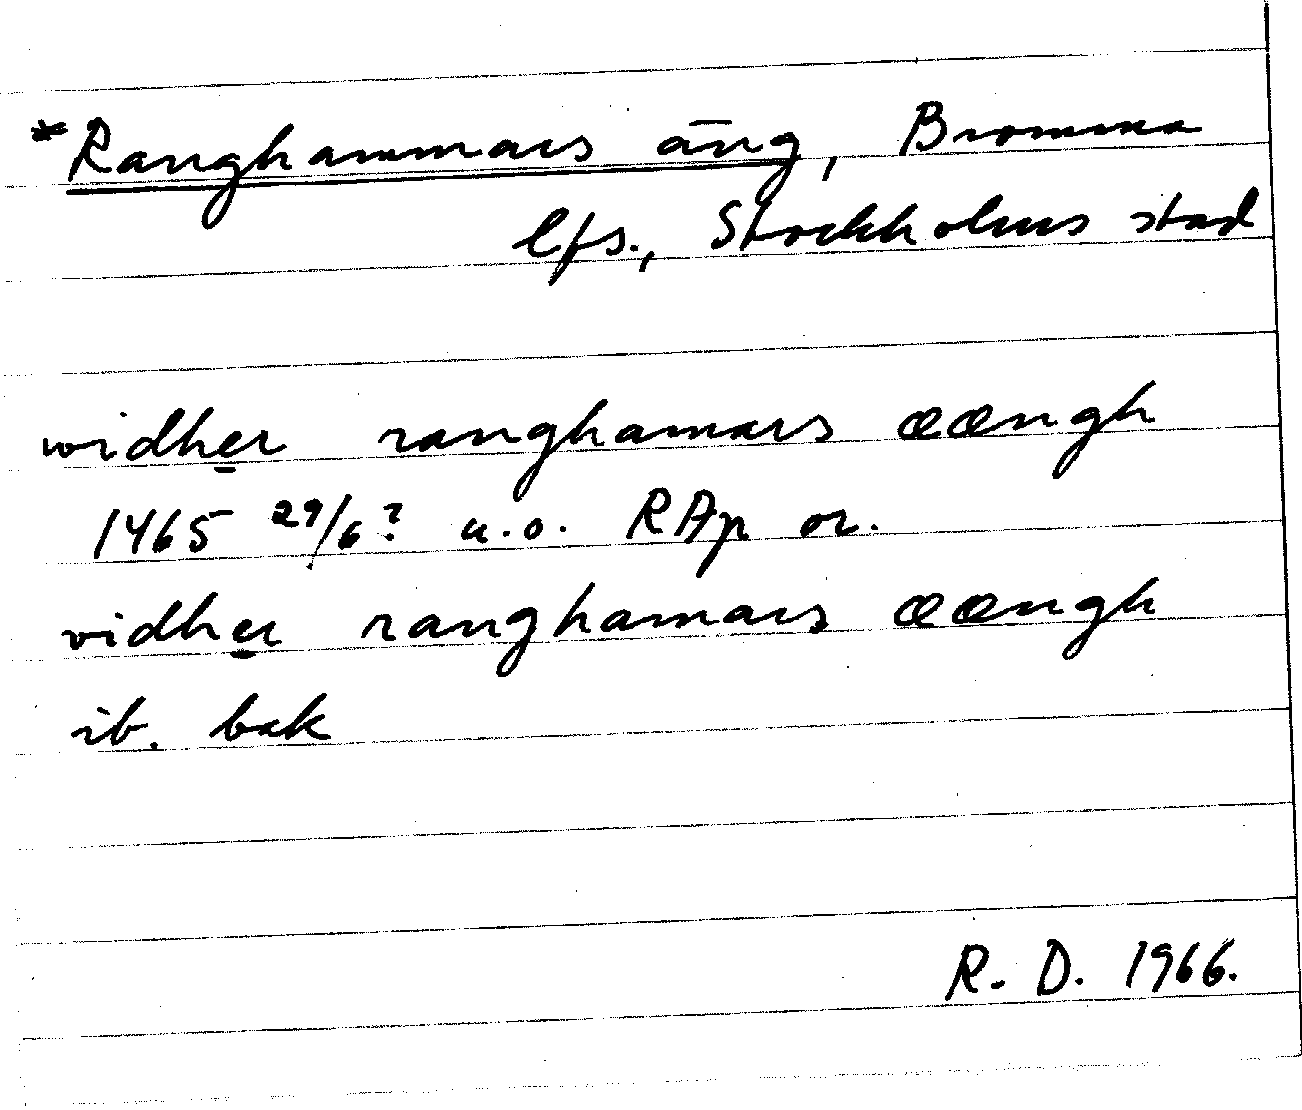 *Ranghammars äng, Bromma
lfs., Stockholms stad
widher ranghamars ææængh
1465 29/6? u.o. RAp or.
vidher ranghamars ææængh
ib. bak
R. D. 1966.